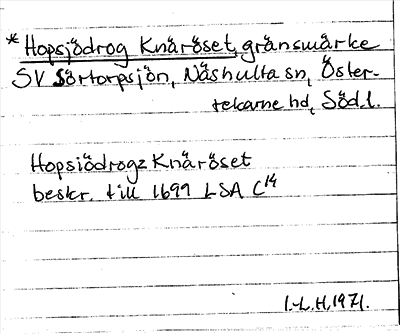 * Hopsjödrog Knäröset, gränsmärke
SV Sörtorpsjön, Näshulta sn, Öster-
rekarne hd, Södl.
Hopsiödrogz Knäröset
beskr. till 1699 LSA C14
I.-L. H. 1971.